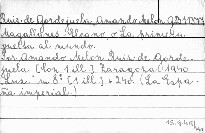 Ruiz de Gordejuela, Amando Melon
Magallanes Elcano o La primera
vuelta al mundo.
Por Amando Melon Ruiz de Gorde-
juela. [Con 1 ill.] Zaragoza: 1940
Luz m. 8° [1 ill.] + 240. (La Espa-
ña imperial.)